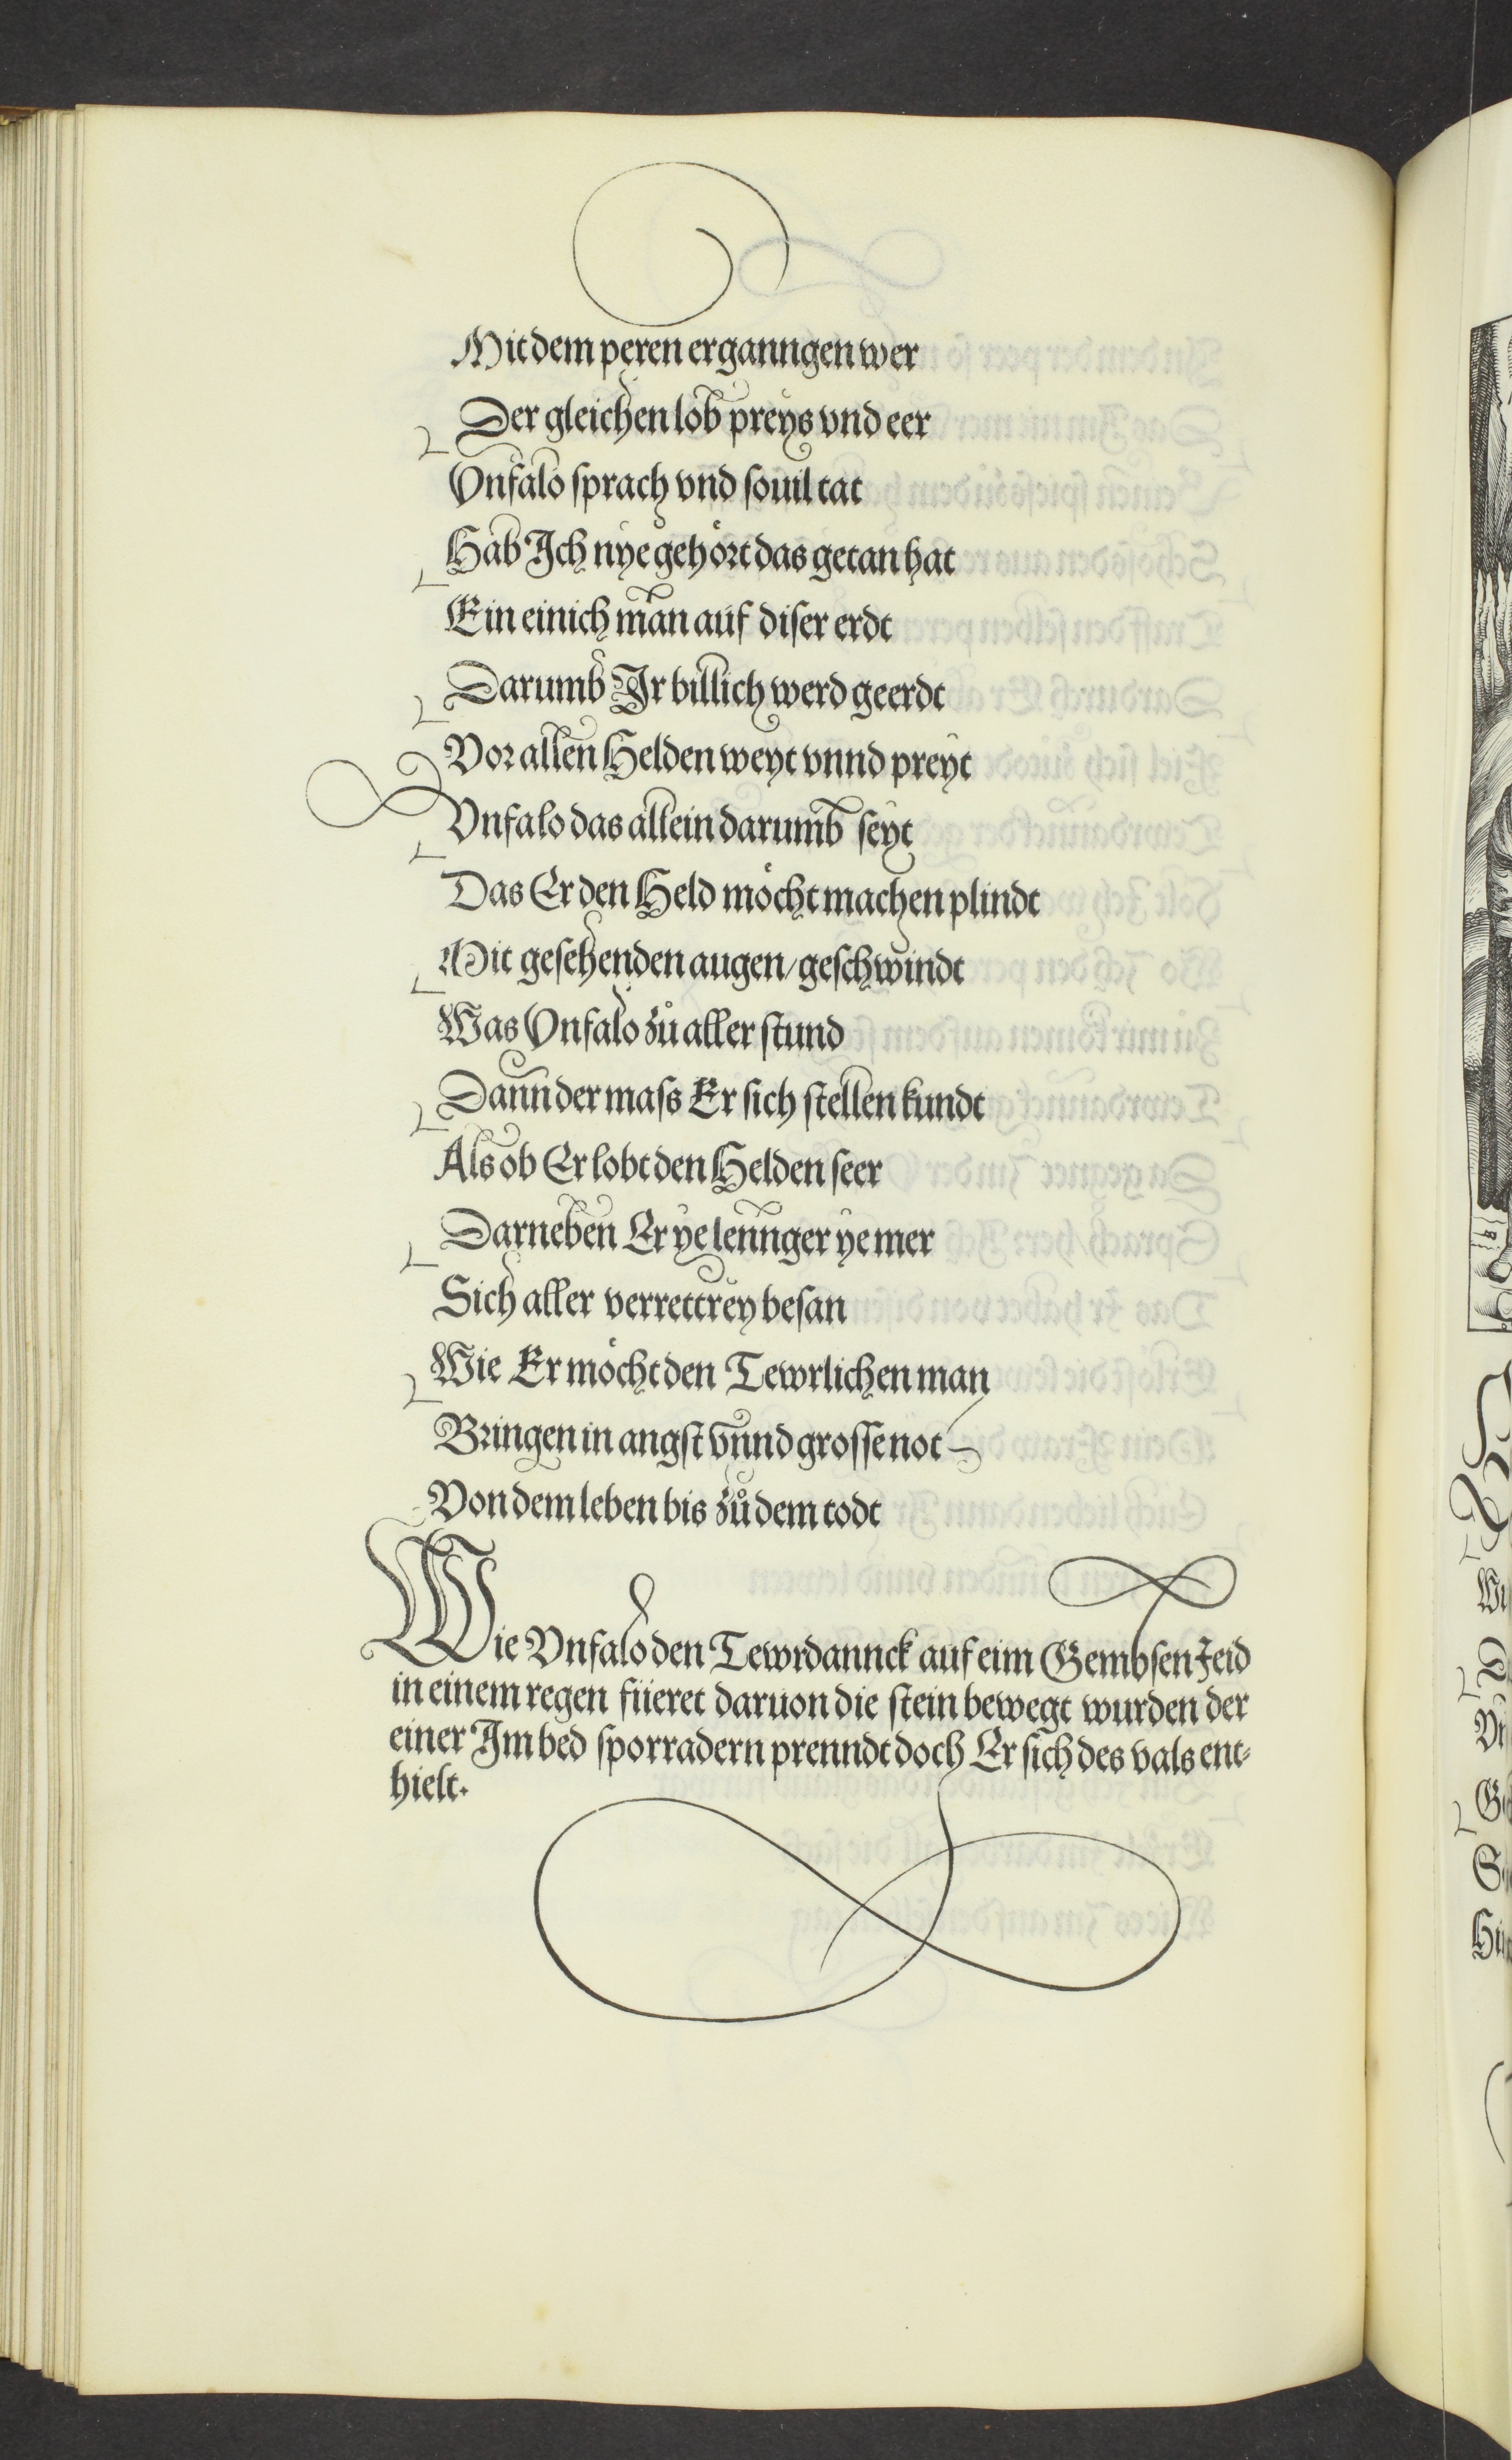 Mit dem peren erganngen wer
Der gleichen lob preys vnd eer
Vnfalo sprach vnd souil tat
Hab Ich nye gehört das getan hat
Ein einich man auf diser erdt
Darumb Ir billich werd geerdt
Vor allen Helden weyt vnnd preyt
Vnfalo das allein darumb seyt
Das Er den Held möcht machen plindt
Mit gesehenden augen/geschwindt
Was Vnfalo zů aller stund
Dann der mass Er sich stellen kundt
Als ob Er lobt den Helden seer
Darneben Er ye lennger ye mer
Sich aller verrettrey besan
Wie Er möcht den Tewrlichen man
Bringen in angst vnnd grosse not
Von dem leben bis zů dem todt
Wie Vnfalo den Tewrdannck auf eim Gembsen Jeid
in einem regen füeret daruon die stein bewegt wurden der
einer Im bed sporradern prenndt doch Er sich des vals ent-
hielt.